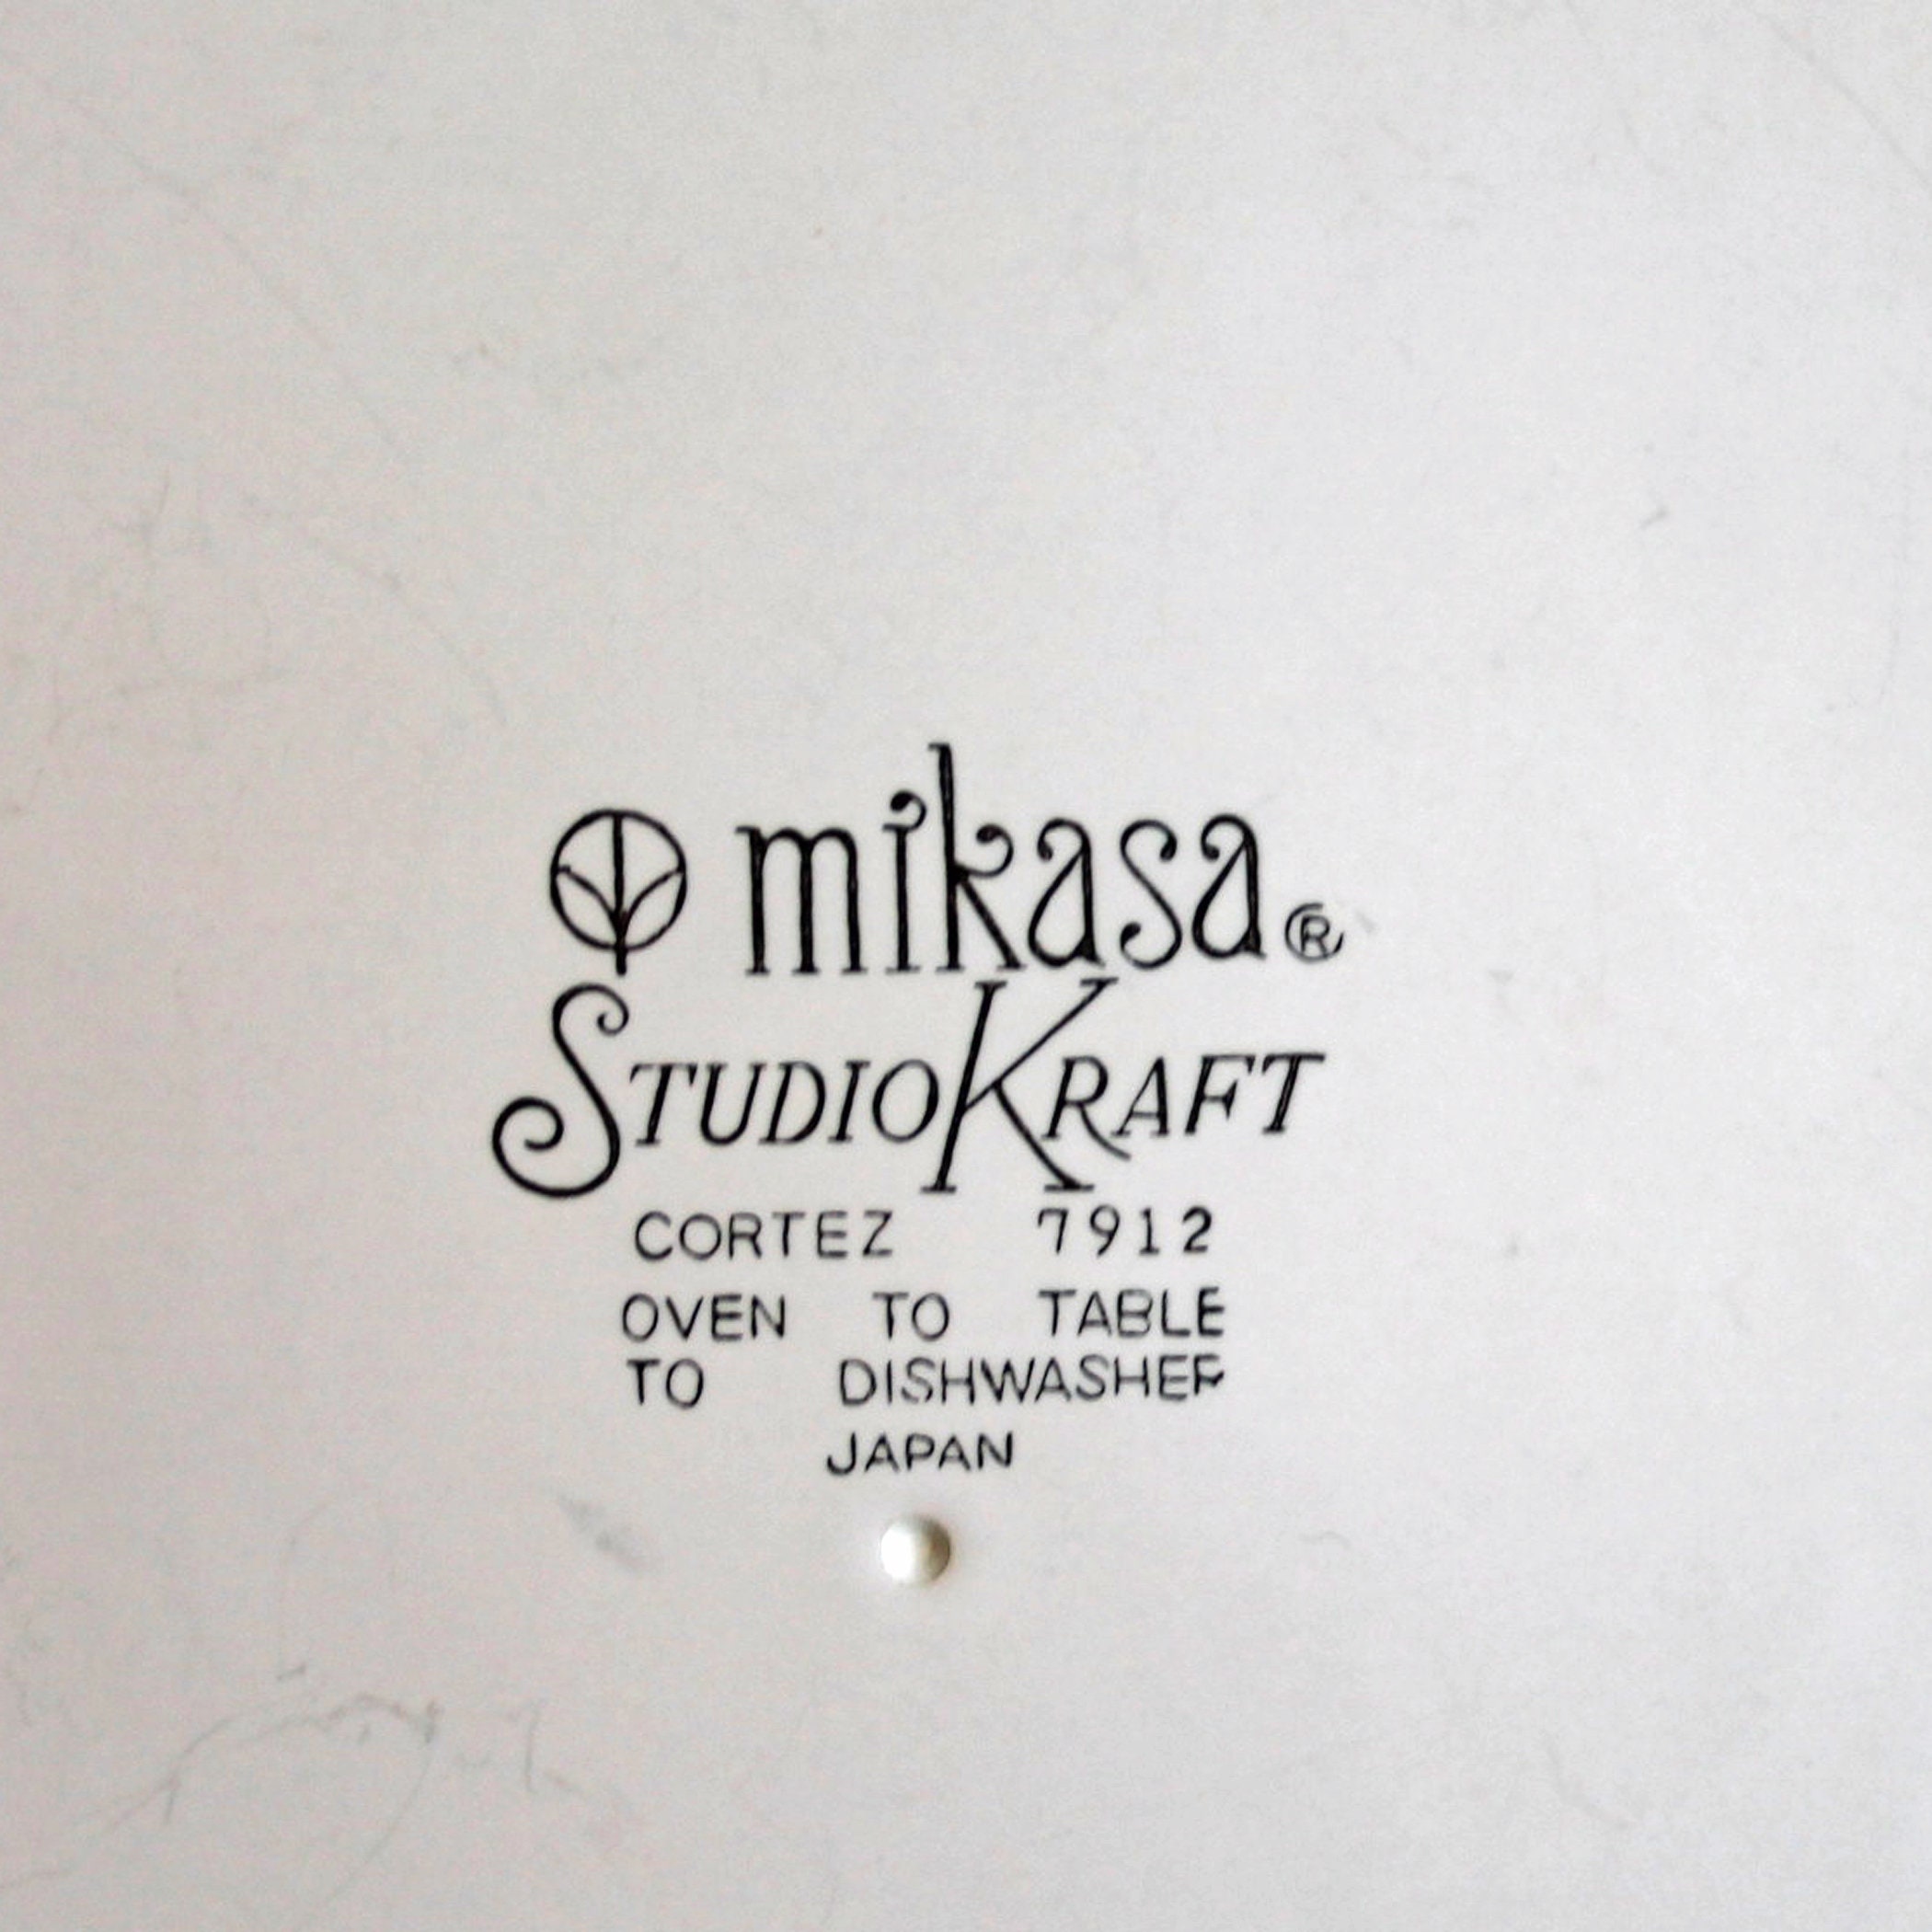 mikasa®
STUDIOKRAFT
CORTEZ 7912
OVEN TO TABLE
TO DISHWASHER
JAPAN